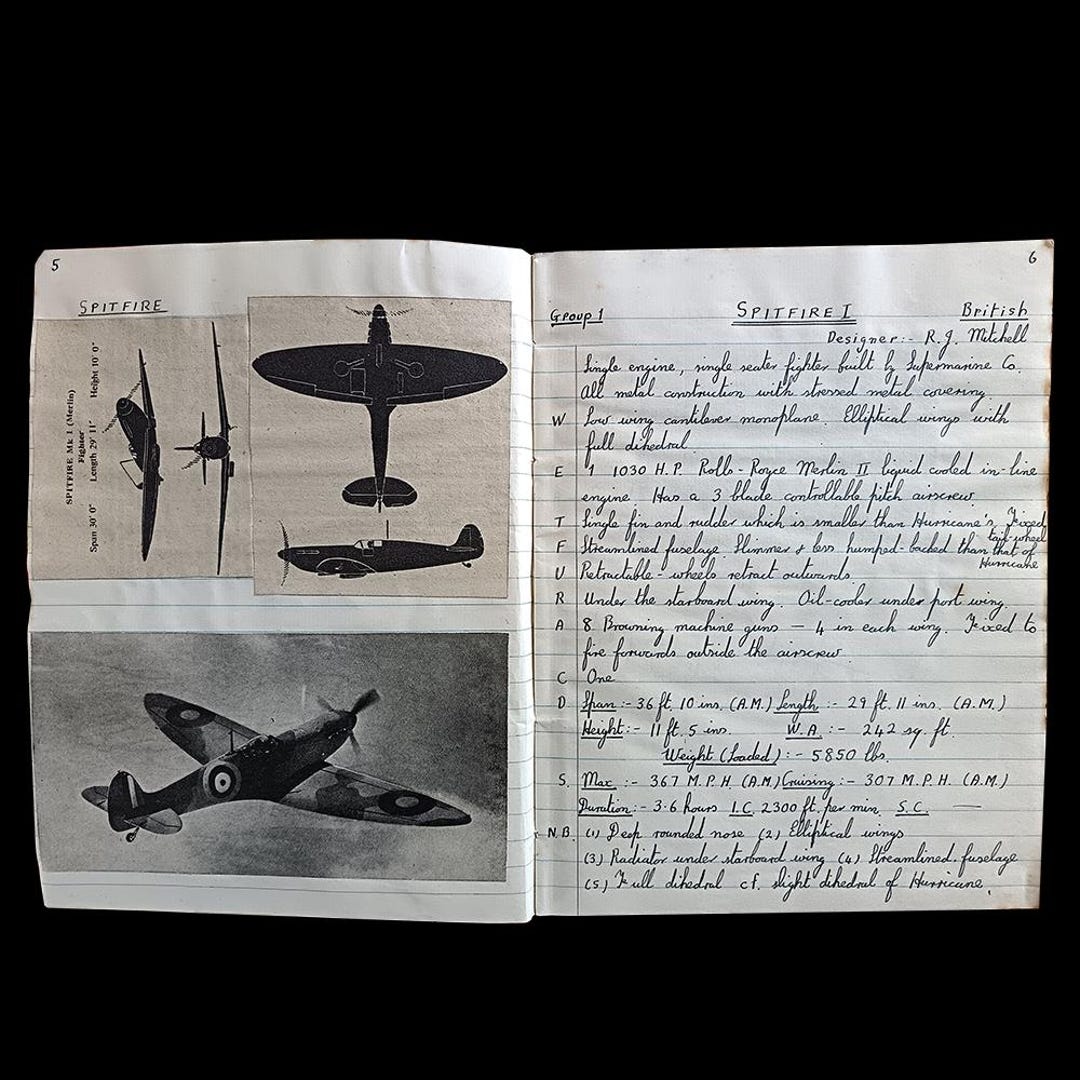 5
SPITFIRE
SPITFIRE Mk I (Merlin)
Fighter
Span 30' 0" Length 29' 11" Height 10' 0"
6
Group 1 SPITFIRE I British
Designer:- R.J. Mitchell
Single engine, single seater fighter built by Supermarine Co.
All metal construction with stressed metal covering.
W Low wing cantilever monoplane. Elliptical wings with
full dihedral.
E 1 1030 H.P. Rolls-Royce Merlin II liquid cooled in-line
engine. Has a 3 blade controllable pitch airscrew.
T Single fin and rudder which is smaller than Hurricane's. Fixed
tail-wheel
F Streamlined fuselage. Slimmer & less humped-backed than that of
Hurricane
U Retractable - wheels retract outwards.
R Under the starboard wing. Oil-cooler under port wing.
A 8 Browning machine guns — 4 in each wing. Fixed to
fire forwards outside the airscrew.
C One
D Span:- 36 ft. 10 ins. (A.M.) Length:- 29 ft. 11 ins. (A.M.)
Height:- 11 ft. 5 ins. W.A.:- 242 sq. ft.
Weight (Loaded):- 5850 lbs.
S. Max:- 367 M.P.H. (A.M.) Cruising:- 307 M.P.H. (A.M.)
Duration:- 3.6 hours I.C. 2300 ft. per min. S.C. —
N.B. (1) Deep rounded nose (2) Elliptical wings
(3) Radiator under starboard wing (4) Streamlined fuselage
(5) Full dihedral cf. slight dihedral of Hurricane.